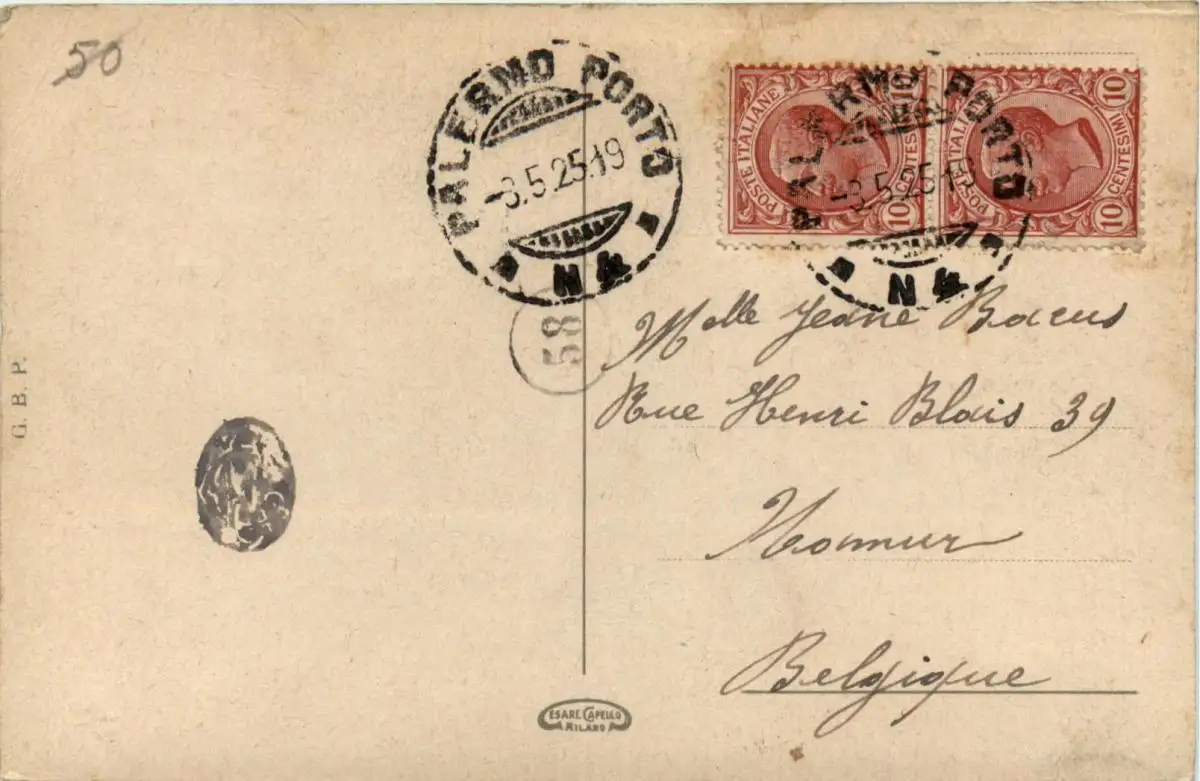 50
PALERMO PORTO
-3.5.25.19
N4
POSTE ITALIANE
10 CENTESIMI 10
POSTE ITALIANE
10 CENTESIMI 10
PALERMO PORTO
-3.5.25.19
N4
58
Melle Jeane Bacus
Rue Henri Blais 39
Namur
Belgique
G. B. P.
CESARE CAPELLO
MILANO